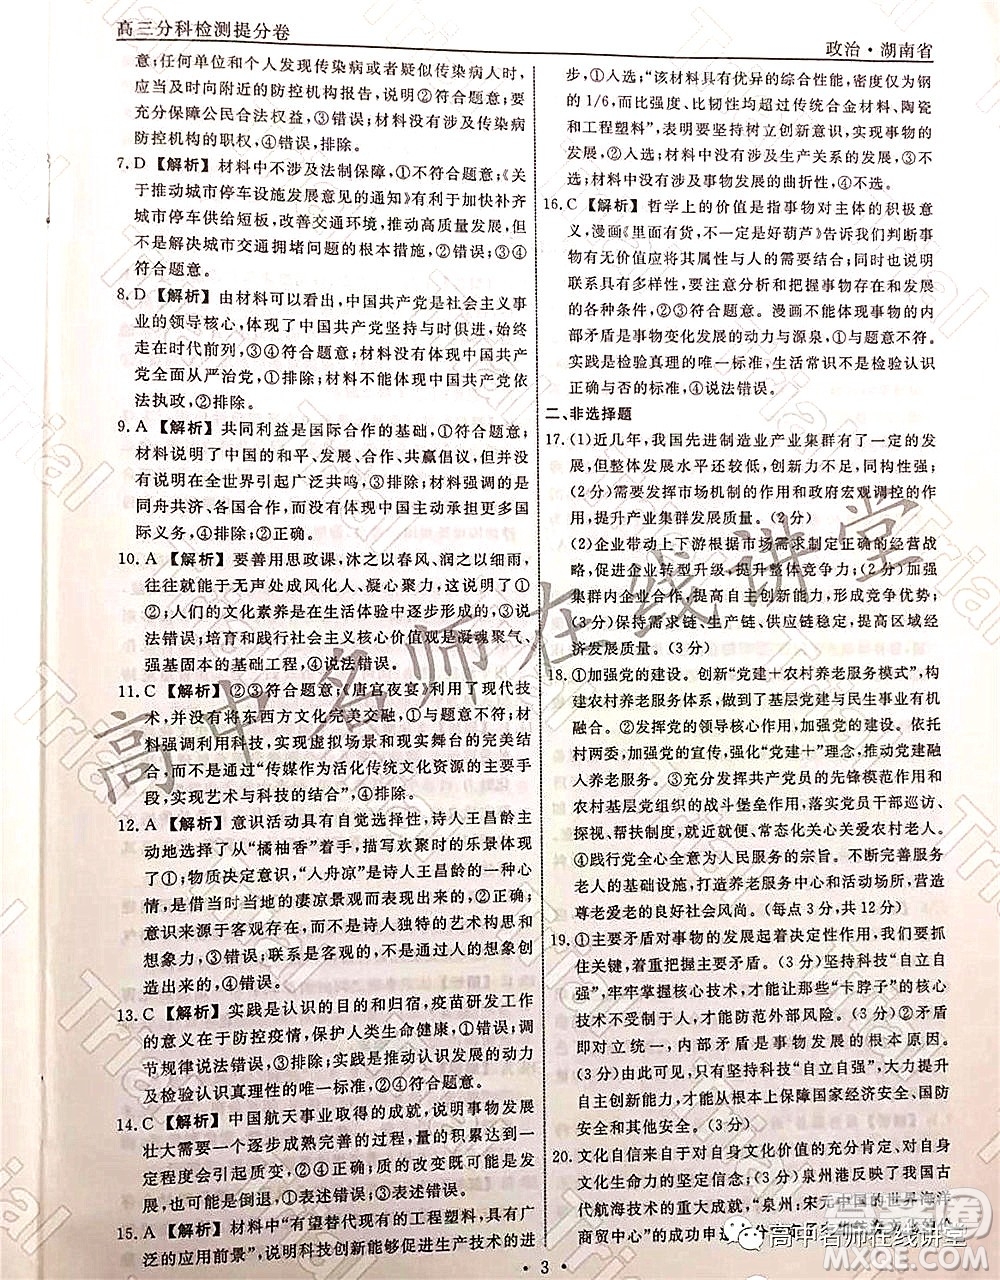 高三分科检测提分卷
政治·湖南省
意;任何单位和个人发现传染病或者疑似传染病人时,
应当及时向附近的防控机构报告,说明②符合题意;要
充分保障公民合法权益,③错误;材料没有涉及传染病
防控机构的职权,④错误,排除。
7. D 【解析】材料中不涉及法制保障,①不符合题意;《关
于推动城市停车设施发展意见的通知》有利于加快补齐
城市停车供给短板,改善交通环境,推动高质量发展,而
不是解决城市交通拥堵问题的根本措施,②错误;③④
符合题意。
8. D 【解析】由材料可以看出,中国共产党是社会主义事
业的领导核心,体现了中国共产党坚持与时俱进,始终
走在时代前列,③④符合题意;材料没有体现中国共产
党全面从严治党,①排除;材料不能体现中国共产党依
法执政,②排除。
9. A 【解析】共同利益是国际合作的基础,①错误;材料
内容说明了中国的和平、发展、合作、共赢倡议,与中国
没有说在全世界引起广泛共鸣,③排除;材料强调的是
同舟共济、合作共赢,而没有体现中国主动承担更多国
际义务,④排除;②正确。
10. A 【解析】要善用思政课,沐之以春风、润之以细雨,
往往就能于无声处成风化人、凝心聚力,这说明①
②;人们的文化素养是在生活体验中逐步形成的,③
说法错误;培育和践行社会主义核心价值观是凝魂聚气、
强基固本的基础工程,④说法错误。
11. C 【解析】②③符合题意;《唐宫夜宴》利用了现代技
术,并没有将东西方文化完美交融,①与题意不符;材
料强调利用科技,实现虚拟场景和现实舞台的完美结
合,而不是通过“传媒作为活化传统文化资源的主要手
段,实现艺术与科技的结合”,④排除。
12. A 【解析】意识活动具有自觉选择性,诗人王昌龄主
动地选择了从“橘柚香”着手,描写欢聚时的乐景体现
了①;②为正确选项,“人舟凉”是诗人王昌龄的一种心
情,是借当时当地的凄凉景象而表达出来的,而不是
想象来源于客观存在,而是诗人独特的艺术构思和
想象,③错误;意象是客观的,不能通过人的想象创造
出来,④错误。
13. C 【解析】实践是认识的目的和归宿,疫苗研发工作
的意义在于防控疫情,保护人类生命健康,①错误;调
节规律说法错误,③排除;实践是推动认识发展的动力
及检验认识真理性的唯一标准,②④符合题意。
14. C 【解析】中国航天事业取得的成就,说明事物发展
壮大需要一个走向成熟完善的过程,量的积累达到一
定程度才能引起质变,①④符合题意;②表述错误,事
物的发展是前进性与曲折性的统一;③表述错误。
15. A 【解析】材料中“有望替代现有的工程塑料,具有广
泛的应用前景”,说明科技创新能够促进生产工具的进
步,①入选;“该材料具有优异的综合性能,密度仅为钢
的 1/6,比强度、比韧性均超过传统合金材料、陶瓷
和工程塑料”,表明要坚持树立创新意识,实现事物的
发展,②入选;材料中没有涉及生产关系的发展,③不
选;材料中没有涉及事物发展的曲折性,④不选。
16. C 【解析】哲学上的价值是指事物对主体的积极意
义,漫画《里面有货,不一定是好葫芦》告诉我们判断事
物有无价值应将其属性与人的需要相联系,事物的
联系具有多样性,要注意分析和把握事物存在和发展
的各种条件,②③符合题意。漫画不能体现事物的内
部矛盾是事物变化发展的动力与源泉,①与题意不符。
实践是检验真理的唯一标准,生活常识不是检验认识
正确与否的标准,④说法错误。
二、非选择题
17. (1)近几年,我国先进制造业产业集群有了一定的发
展,但集群发展水平还较低,创新力不足,同质化高;
(2 分)需要发挥市场机制的作用和政府宏观调控的作
用,提升产业集群发展质量。(2 分)
(2)企业带动上下游根据市场需求制定正确的经营战
略,促进企业转型升级,提升整体竞争力;(2 分)加强
集群内企业合作,提高自主创新能力,形成竞争优势;
(3 分)保持需求链、生产链、供应链稳定,提高区域经
济发展质量。(3 分)
18. ①加强党的建设。创新“党建+农村养老服务模式”,构
建农村养老服务体系,推动了基层党建与民生事业有机
融合。②发挥党的领导核心作用,加强党的建设。依托
村两委,加强党的宣传,强化“党建+”理念,推动党建融
入养老服务。③充分发挥共产党员的先锋模范作用和
农村基层党组织的战斗堡垒作用,农村干部巡访、
探视、帮扶制度,就近就便、常态化关心关爱农村老人。
④践行党全心全意为人民服务的宗旨。不断满足服务
老人的具体需求,打造养老服务中心和活动场所,营造
尊老爱老的良好社会风尚。(每点 3 分,共 12 分)
19. ①主要矛盾对事物的发展起着决定性作用,要善于抓
住关键。(3 分)坚持科技“自立自
强”,牢牢掌握核心技术,才能让“卡脖子”的核心
技术不受制于人,才能防范外部风险。(3 分)②矛盾
即对立统一,内部矛盾是事物发展的根本原因。
(3 分)只有坚持科技“自立自强”,大力提升
自主创新能力,才能从根本上保障国家经济安全和其
他安全。(3 分)
20. 文化自信来自于对自身文化价值的充分肯定、对自身
文化生命力的坚定信念。(2 分)泉州港反映了我国古
代航海技术的发展,“泉州:宋元中国的世界海洋
商贸中心”的成功申遗
高中名师在线讲堂
Trial
· 3 ·
答案圈
MXQE.COM